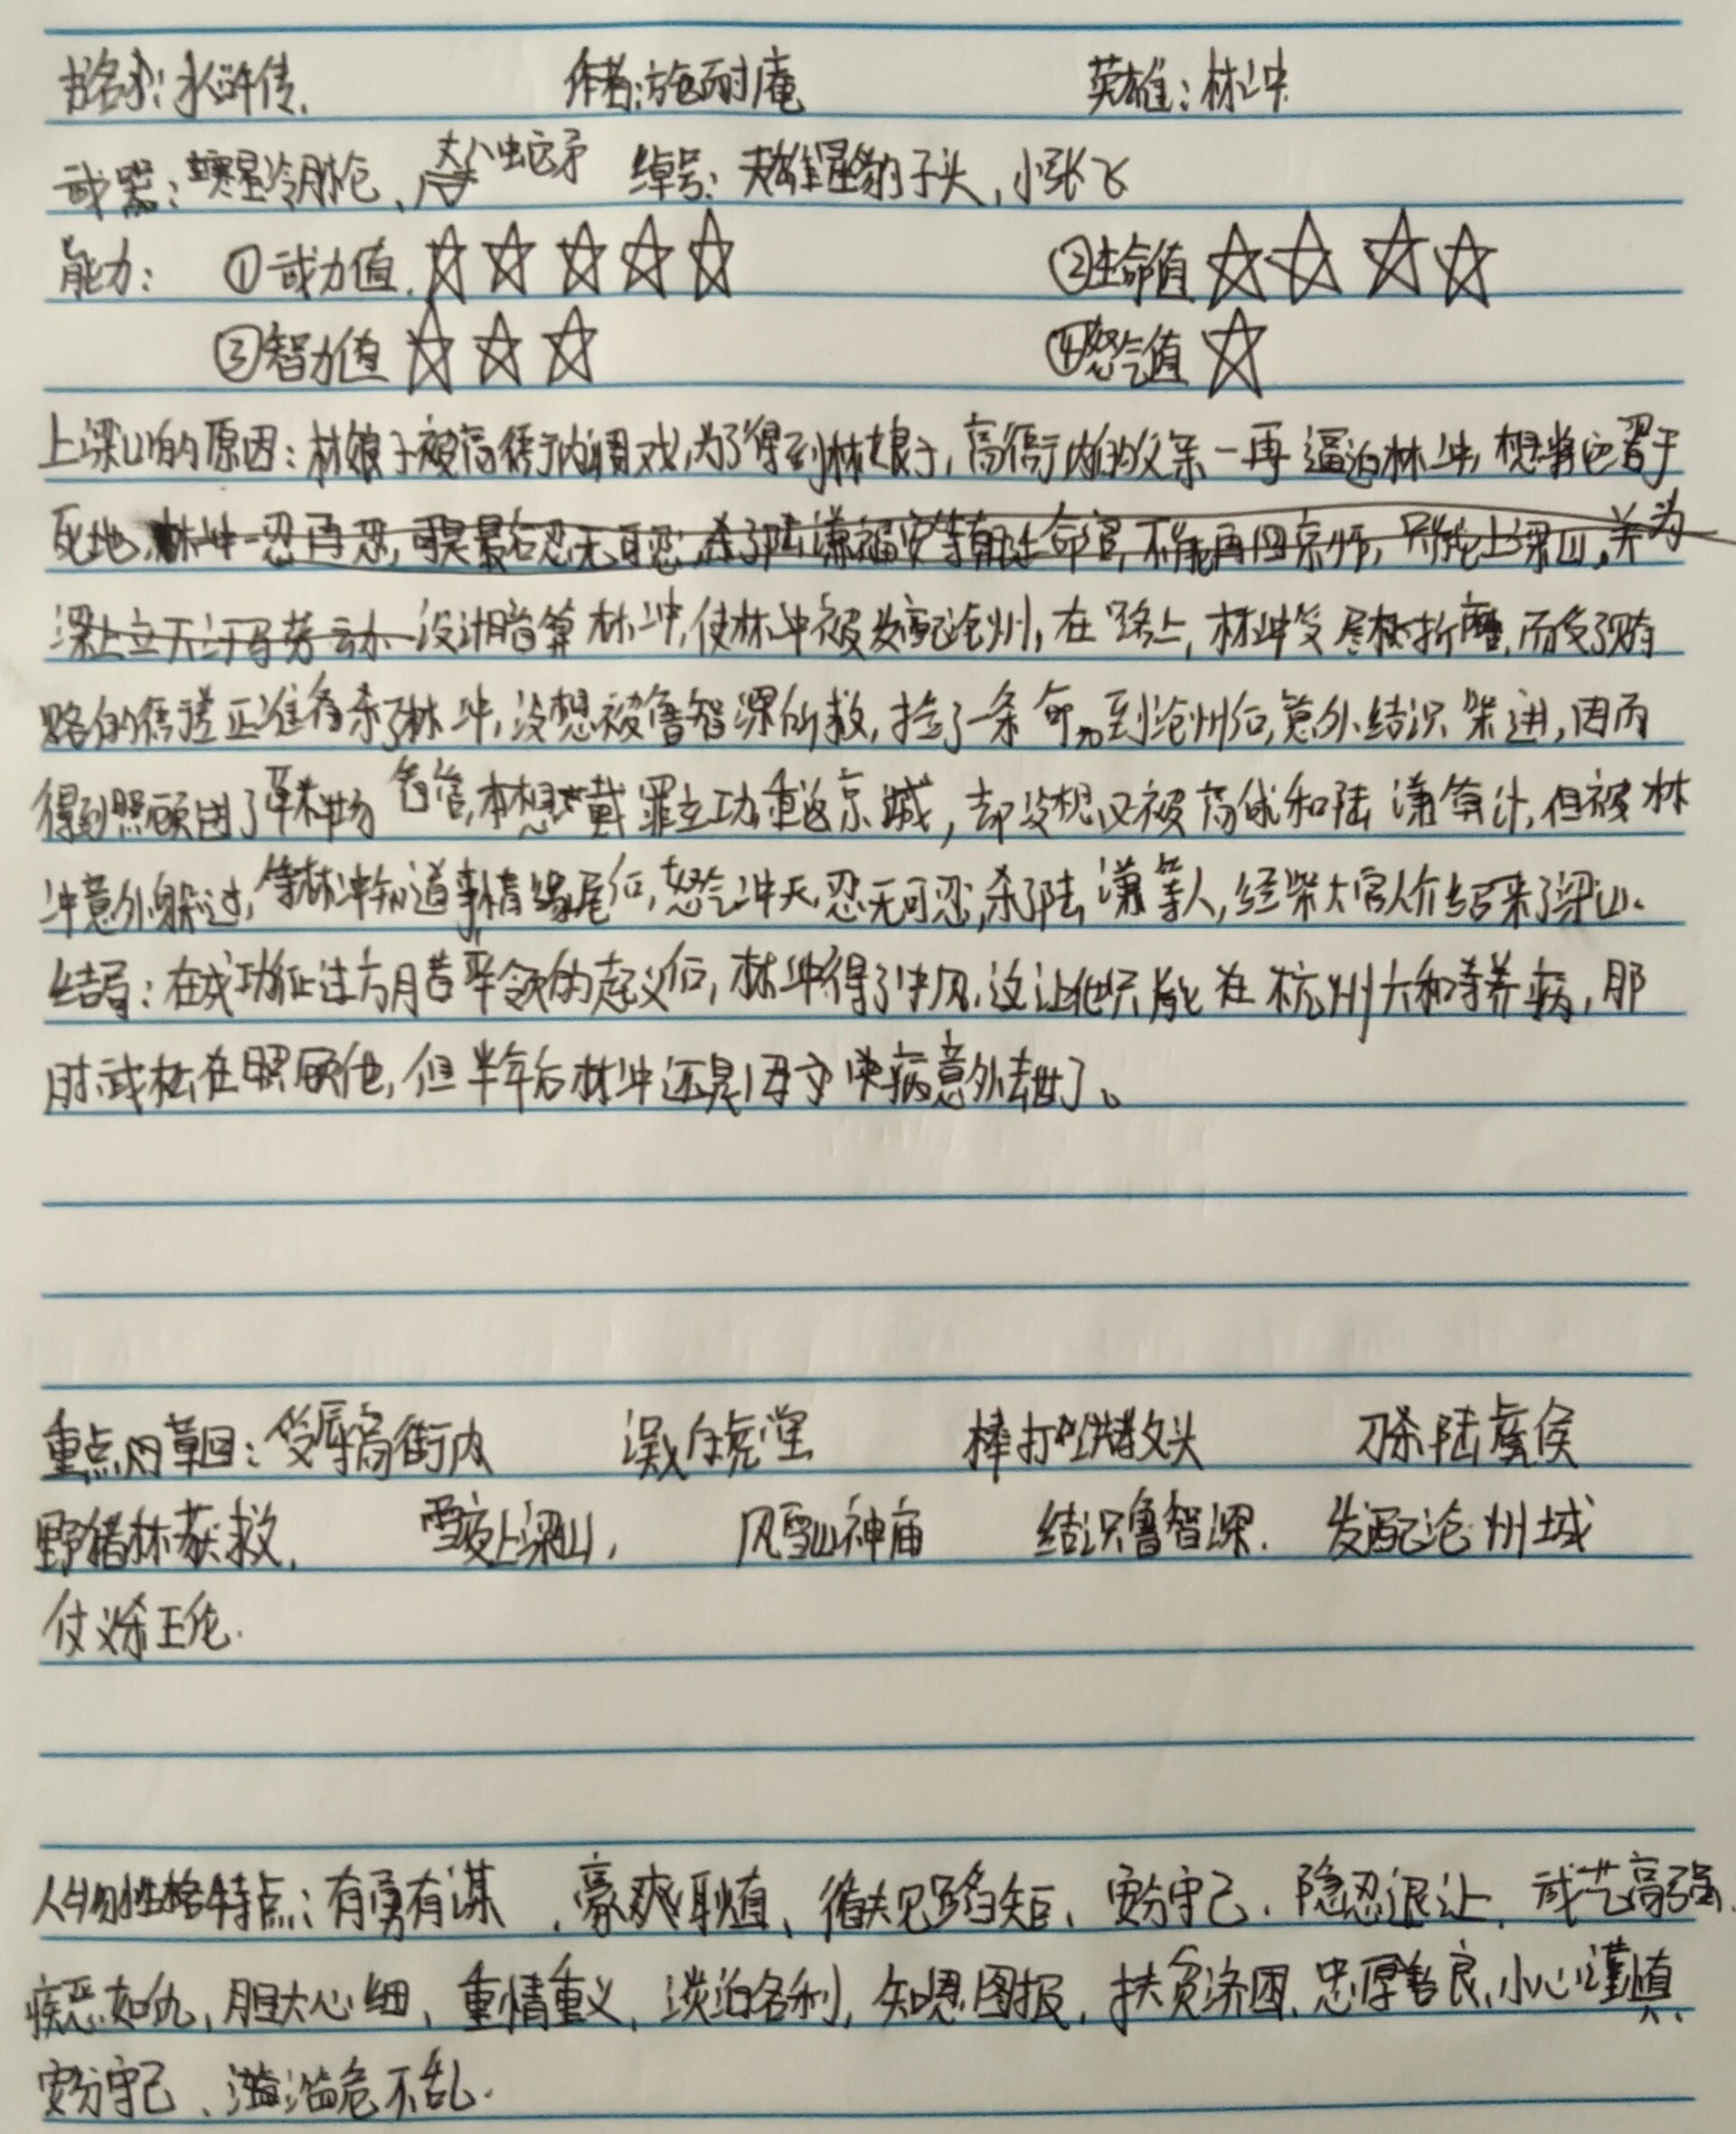 书名:水浒传. 作者:施耐庵 英雄:林冲
武器:寒星冷月枪、丈八蛇矛 绰号:天雄星豹子头,小张飞
能力: ①武力值.☆☆☆☆☆ ②生命值☆☆☆☆
③智力值☆☆☆ ④怒气值☆
上梁山的原因:林娘子被高衙内调戏,为了得到林娘子,高衙内的父亲一再逼迫林冲,想将它置于
死地,林冲一忍再忍,可是最后忍无可忍,杀了陆谦福安等朝廷命官,不能再回京师,只能上梁山,并为
梁上立下汗马劳功 设计暗算林冲,使林冲被发配沧州,在路上,林冲受尽折磨,而受了贿
赂的衙差正准备杀了林冲,没想被鲁智深所救,捡了一条命。到沧州后,意外结识柴进,因而
得到照顾当了草料场 看管,本想戴罪立功重返京城,却没想又被高俅和陆谦算计,但被林
冲意外躲过,等林冲知道事情缘尾后,怒气冲天,忍无可忍,杀了陆谦等人,经柴大官人介绍来了梁山.
结局:在成功征过方腊率领的起义后,林冲得了中风,这让他只能在杭州六和寺养病,那
时武松在照顾他,但半年后林冲还是因为中病意外去世了。
重点内章回:受辱高衙内 误入白虎堂 棒打洪教头 刀杀陆虞侯
野猪林获救. 雪夜上梁山, 风雪山神庙 结识鲁智深. 发配沧州城
仗义杀王伦.
人物性格特点:有勇有谋 、豪爽耿直、循夫见蹈矩、安分守己、隐忍退让、武艺高强、
疾恶如仇,胆大心细,重情重义,淡泊名利,知恩图报,扶贫济困、忠厚善良、小心谨慎、
安分守己、临危不乱.